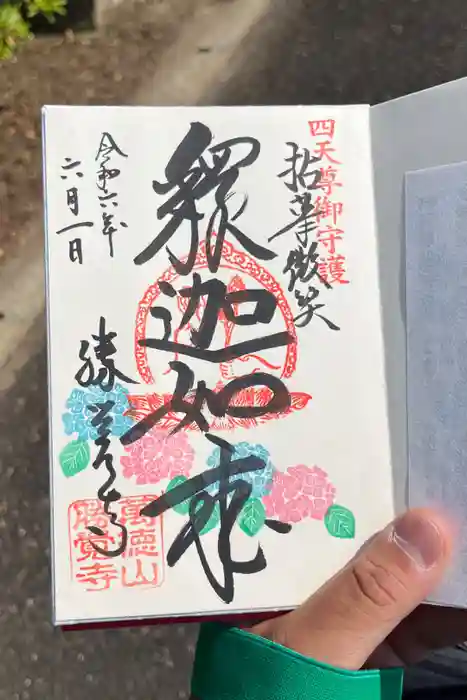 四天尊御守護
拈華微笑
釋迦如来
令和六年
六月一日
勝覚寺
萬徳山
勝覚寺